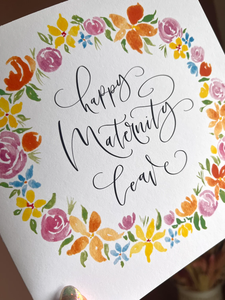 happy
Maternity
leave